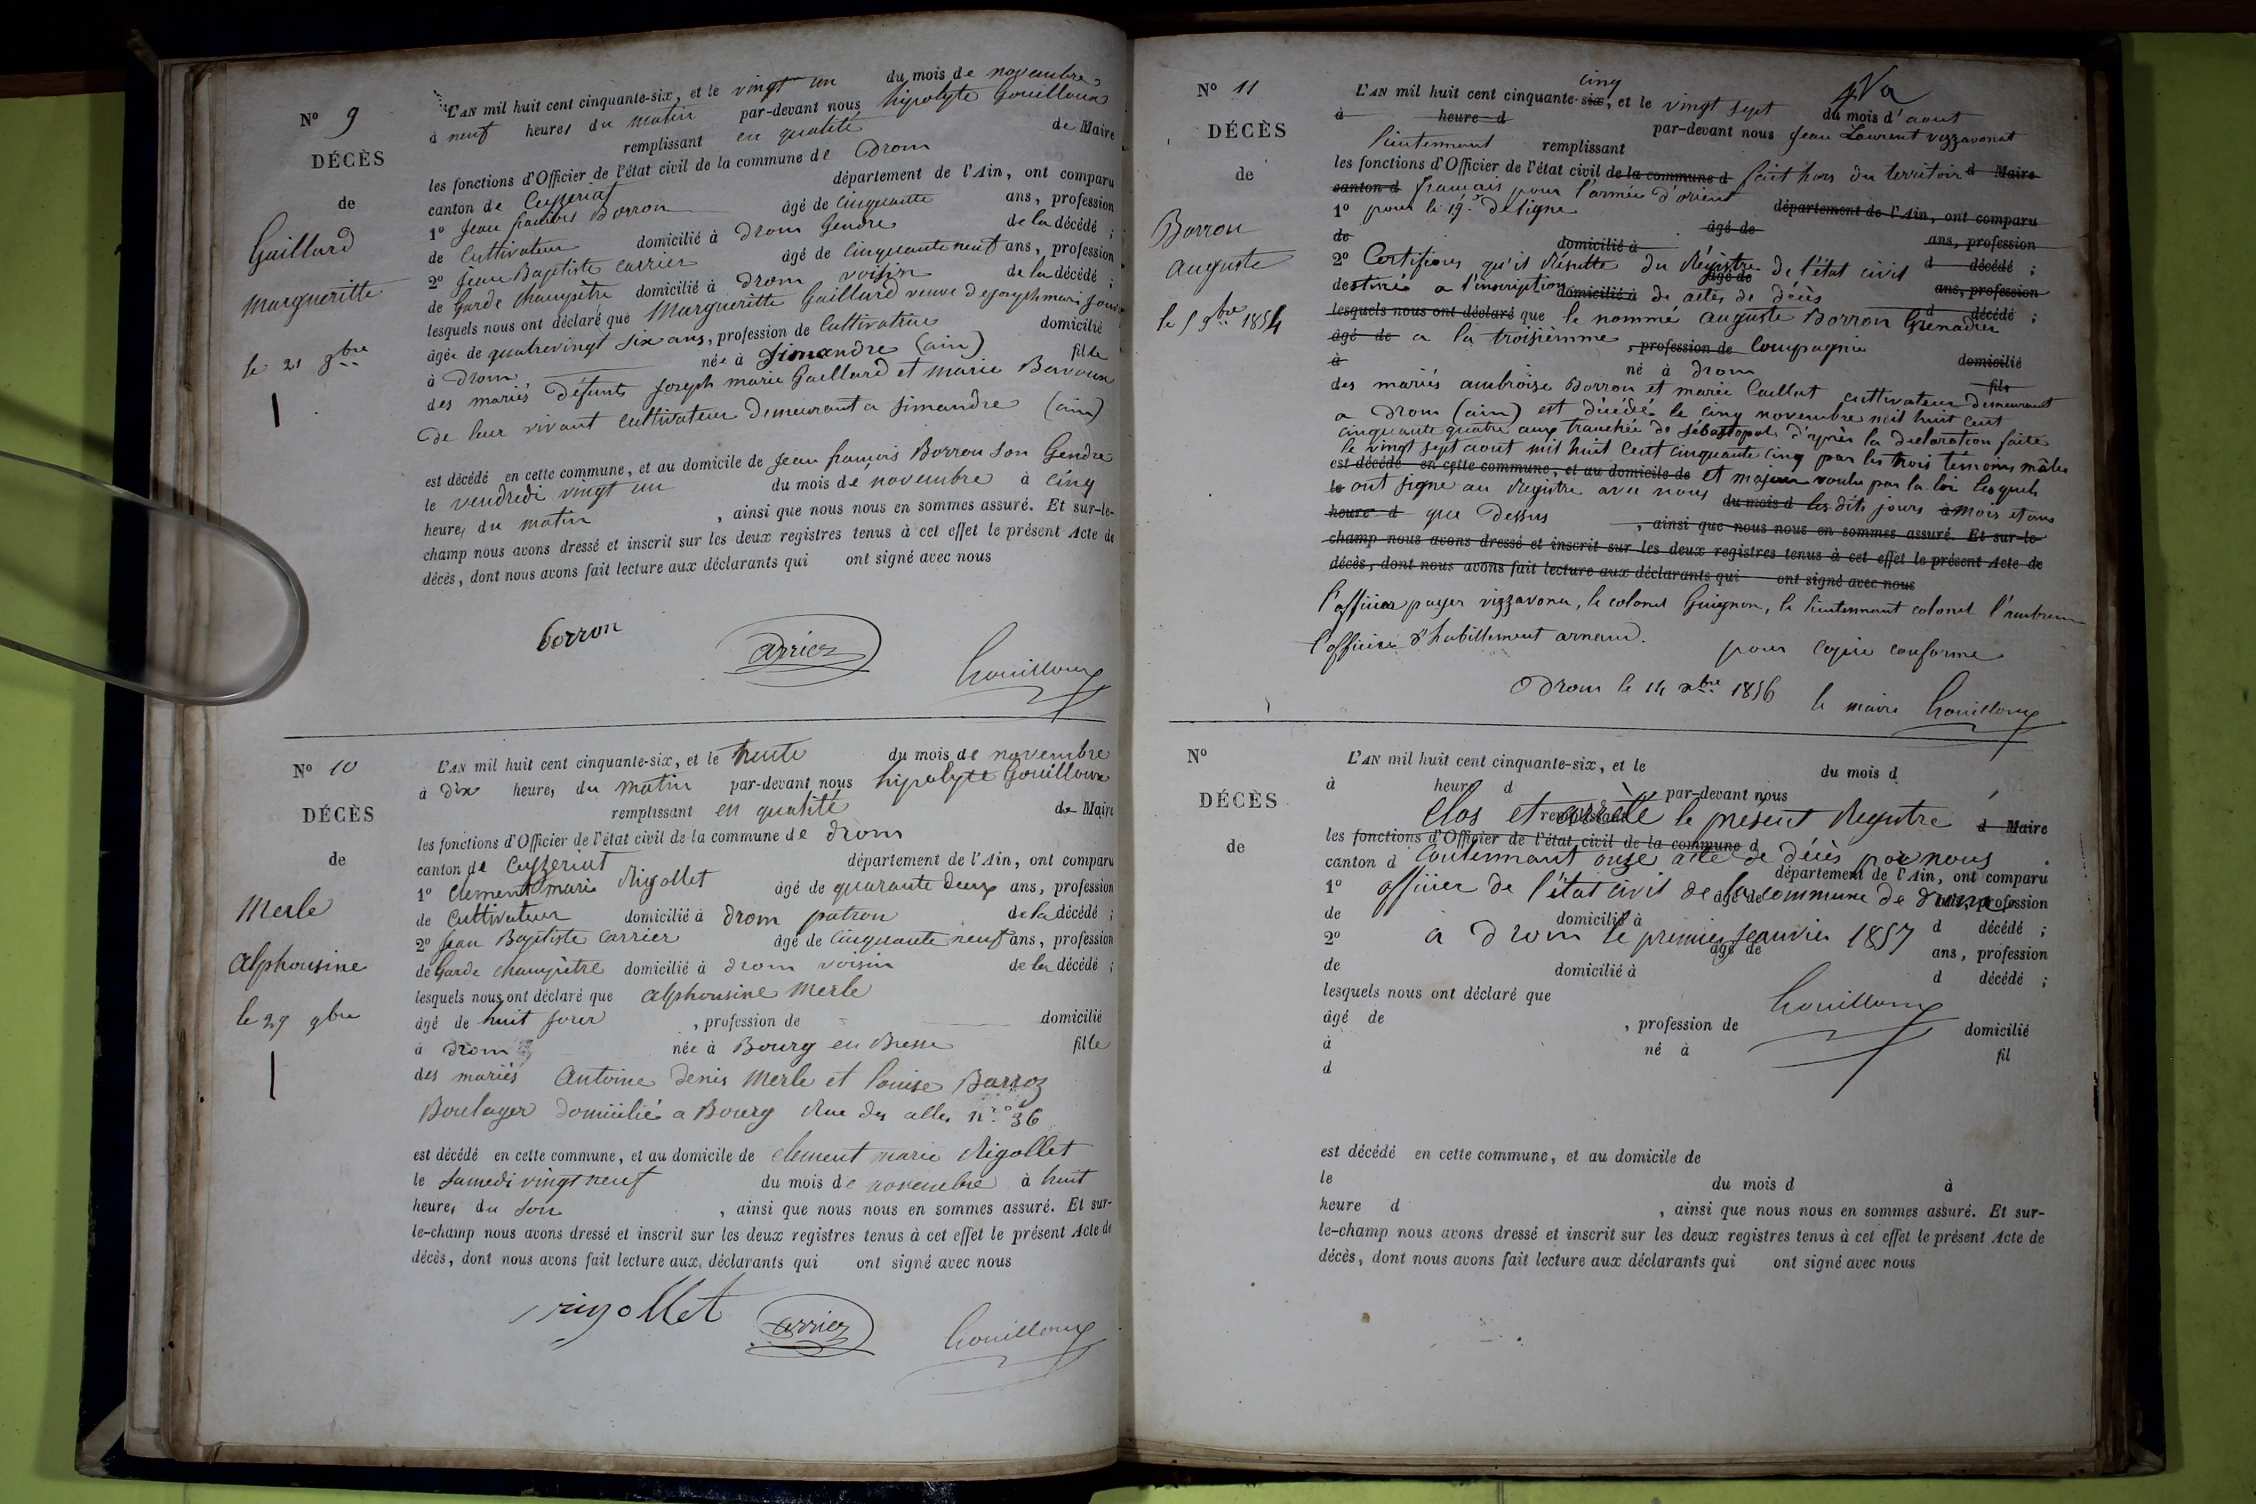 N° 9
DÉCÈS
de
Gaillard
Margueritte
le 21 9bre
L'AN mil huit cent cinquante-six, et le vingt un du mois de novembre
à neuf heures du matin par-devant nous hipolyte Gouilloux
remplissant en qualité de Maire
les fonctions d'Officier de l'état civil de la commune de Drom
canton de Ceyzeriat département de l'Ain, ont comparu
1° Jean françois Borron âgé de cinquante ans, profession
de Cultivateur domicilié à Drom Gendre de la décédé ;
2° Jean Baptiste Carrier âgé de cinquante neuf ans, profession
de Garde champêtre domicilié à Drom voisin de la décédé ;
lesquels nous ont déclaré que Margueritte Gaillard veuve de joseph marie
âgée de quatrevingt six ans, profession de Cultivatrice domicilié
à Drom née à Simandre (ain) fille
des mariés défunts Joseph marie Gaillard et marie
de leur vivant cultivateur demeurant a Simandre (ain)
est décédé en cette commune, et au domicile de Jean françois Borron son Gendre
le vendredi vingt un du mois de novembre à cinq
heures du matin , ainsi que nous nous en sommes assuré. Et sur-le-
champ nous avons dressé et inscrit sur les deux registres tenus à cet effet le présent Acte de
décès, dont nous avons fait lecture aux déclarants qui ont signé avec nous
borron carrier Gouilloux
N° 10
DÉCÈS
de
Merle
Alphonsine
le 29 9bre
L'AN mil huit cent cinquante-six, et le trente du mois de novembre
à dix heures du matin par-devant nous hipolyte Gouilloux
remplissant en qualité de Maire
les fonctions d'Officier de l'état civil de la commune de Drom
canton de Ceyzeriat département de l'Ain, ont comparu
1° Clement marie Rigollet âgé de quarante deux ans, profession
de Cultivateur domicilié à Drom patron de la décédé ;
2° Jean Baptiste Carrier âgé de cinquante neuf ans, profession
de Garde champêtre domicilié à Drom voisin de la décédé ;
lesquels nous ont déclaré que Alphonsine Merle
âgé de huit jours , profession de domicilié
à Drom née à Bourg en Bresse fille
des mariés Antoine Denis Merle et Louise Barroz
Boulager domicilié a Bourg Rue des alles n° 36
est décédé en cette commune, et au domicile de clement marie Rigollet
le samedi vingt neuf du mois de novembre à huit
heures du soir , ainsi que nous nous en sommes assuré. Et sur-
le-champ nous avons dressé et inscrit sur les deux registres tenus à cet effet le présent Acte de
décès, dont nous avons fait lecture aux déclarants qui ont signé avec nous
rigollet carrier Gouilloux
N° 11
DÉCÈS
de
Borron
auguste
le 5 9bre 1854
cinq
L'AN mil huit cent cinquante-six, et le vingt sept du mois d'aout
à heure d par-devant nous Jean Laurent vizzavonat
lieutennant remplissant
les fonctions d'Officier de l'état civil de la commune d fait hors du territoir d Maire
canton d français pour l'armée d'orient
1° pour le 19e de ligne département de l'Ain, ont comparu
de domicilié à âgé de ans, profession
2° Certifions qu'il Résulte du Registre de l'état civil d décédé ;
destiné a l'inscription domicilié à de actes de décès âgé de ans, profession
lesquels nous ont déclaré que le nommé auguste Borron Grenadier d décédé ;
âgé de a la troisièmme , profession de Compagnie
à né à Drom domicilié
des mariés ambroise Borron et marie Caillat cultivateur demeurant fils
a Drom (ain) est décédé le cinq novembre mil huit cent
cinquante quatre aux tranchée de Sébastopol d'après la déclaration faite
le vingt sept aout mil huit cent cinquante cinq par les trois témoins mâles
est décédé en cette commune, et au domicile de et majeur voulu par la loi lesquels
le ont signé au Registre avec nous du mois d les dits jours à mois et ans
heure d que dessus , ainsi que nous nous en sommes assuré. Et sur-le
champ nous avons dressé et inscrit sur les deux registres tenus à cet effet le présent Acte de
décès, dont nous avons fait lecture aux déclarants qui ont signé avec nous
l'officier payer vizzavona, le colonel Guignon, le lieutennant colonel
l'officier d'habillement arnaud. pour copie conforme
Drom le 14 xbre 1856 le maire Gouilloux
N°
DÉCÈS
de
L'AN mil huit cent cinquante-six, et le du mois d
à heure d par-devant nous
remplissant Clos et arrêté le présent Registre d Maire
les fonctions d'Officier de l'état civil de la commune d
canton d Contennant onze acte de décès par nous
département de l'Ain, ont comparu
1° officier de l'état civil de la commune de Drom âgé de ans, profession
de domicilié à d décédé ;
2° a Drom le premier Janvier 1857 âgé de ans, profession
de domicilié à d décédé ;
lesquels nous ont déclaré que Gouilloux
âgé de , profession de domicilié
à né à fil
d
est décédé en cette commune, et au domicile de
le du mois d à
heure d , ainsi que nous nous en sommes assuré. Et sur-
le-champ nous avons dressé et inscrit sur les deux registres tenus à cet effet le présent Acte de
décès, dont nous avons fait lecture aux déclarants qui ont signé avec nous